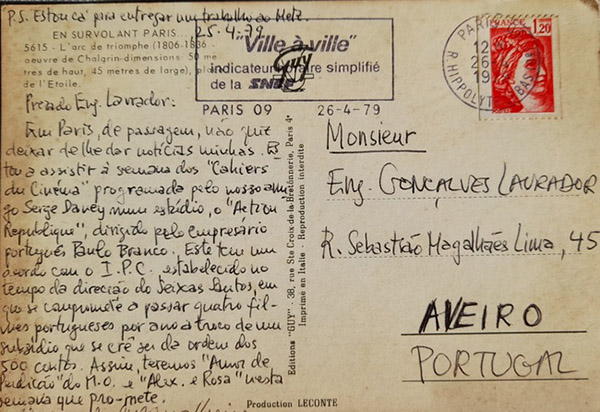 P.S. Estou cá para entregar um trabalho ao Metz.
25.4.79
EN SURVOLANT PARIS...
5615 - L'arc de triomphe (1806-1836 -
oeuvre de Chalgrin-dimensions: 50 mè
tres de haut, 45 metres de large), pla
de l'Etoile.
Prezado Eng. Lavrador:
Em Paris, de passagem, não quiz
deixar de lhe dar notícias minhas. Es
tou a assistir à semana dos "Cahiers
du Cinéma" programada pelo nosso ami
go Serge Daney num estúdio, o "Action
République", dirigido pelo empresário
português Paulo Branco. Este tem um
acordo com o I.P.C. estabelecido no
tempo da direcção do Seixas Santos, em
que se compromete a passar quatro fil-
mes portugueses por ano a troco de um
subsídio que se crê ser da ordem dos
500 contos. Assim, teremos "Amor de
Perdição" do M.O. e "Alex. e Rosa" nesta
semana que pro-mete.
"Ville à ville"
indicateur horaire simplifié
de la SNCF
GUY
PARIS 09 26-4-79
PARIS
12
26
19
R. HIPPOLYTE BAS
FRANCE
1,20
Editions "GUY" - 38, rue Ste Croix de la Bretonnerie, Paris 4e
Imprimé en Italie - Reproduction interdite
Monsieur
Eng. GONÇALVES LAVRADOR
R. Sebastião Magalhães Lima, 45
AVEIRO
PORTUGAL
Production LECONTE